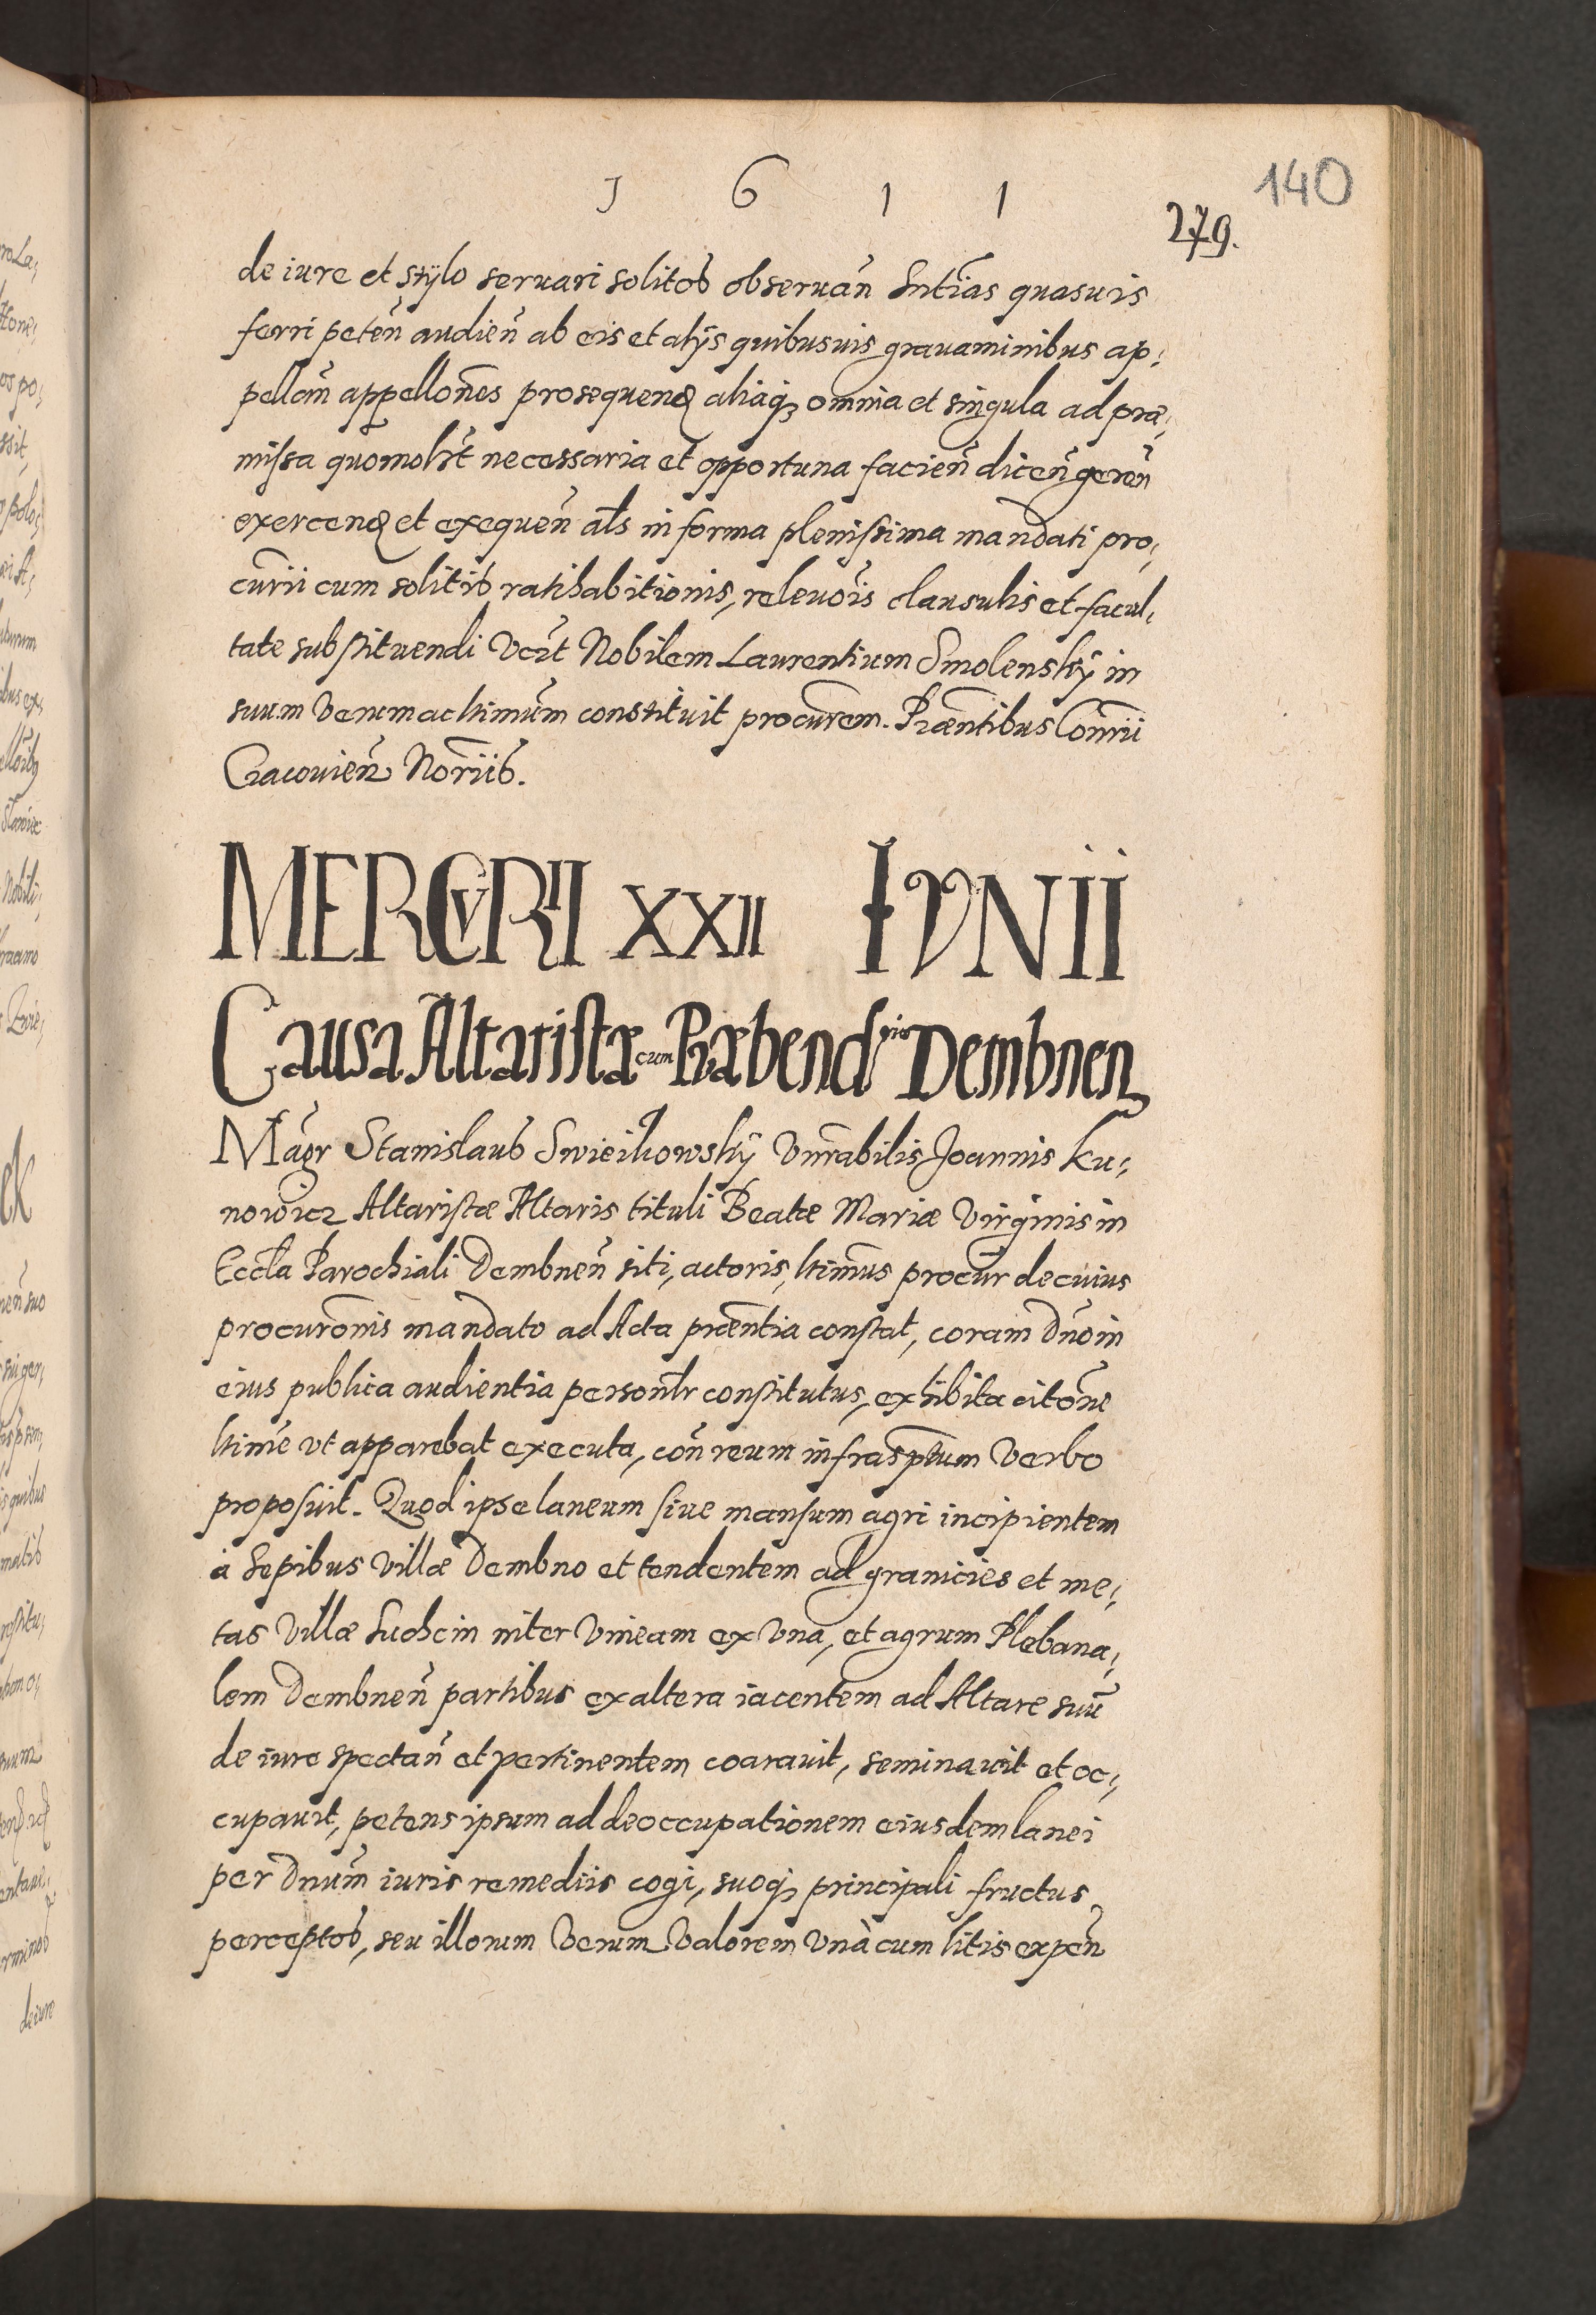 1 6 1 1
140
279.
de iure et stÿlo seruari solitos obseruan̄ Sntīas quasuis
ferri peten̄ audien̄ ab eis et alÿs quibusuis grauaminibus ap;
pellan̄ appellōnes prosequend aliaqȝ omnia et singula ad præ;
missa quōmolȳt necessaria et opportuna facien̄ dicen̄ geren̄
exercend et exequen̄ als in forma plenissima mandati pro;
cūrii cum solitis ratihabitionis, releuōis clausulis et facul;
tate substituendi Vczt Nobilem Laurentium Smolenskÿ in
suum Verum ac ltimūm constituit procūrem. Præntibus Connrii
Cracouien̄ Norīis.
MERCVRII XXII IVNII
Causa Altaristæ cum Præbendrio Dembnen
Māgr Stanislaus Swieikowskÿ Vnrābilis Joannis Ku;
nowicz Altaristæ Altaris tituli Beatæ Mariæ Virginis in
Eccla Parochiali Dembnen̄ siti, actoris, ltimūs procūr de cuius
procurōnis mandato ad Acta præntia constat, coram Dn̄o in
eius publica audientia personlr constitutus, exhibita citōne
ltimē vt apparebat executa, con̄ reum infrasptum Verbo
proposuit. Quod ipse laneum siue mansum agri incipientem
à Sepibus Villæ Dembno et tendentem ad granicies et me;
tas Villæ Suchcin inter Vineam ex Vna, et agrum Plebana;
lem Dembnen̄ partibus ex altera iacentem ad Altare suū
de iure spectan̄ et pertinentem coarauit, seminauit et oc;
cupauit, petens ipsum ad deoccupationem eiusdem lanei
per Dnūm iuris remediis cogi, suoqȝ principali fructus
perceptos, seu illorum Verum Valorem Vnà cum litis expen̄